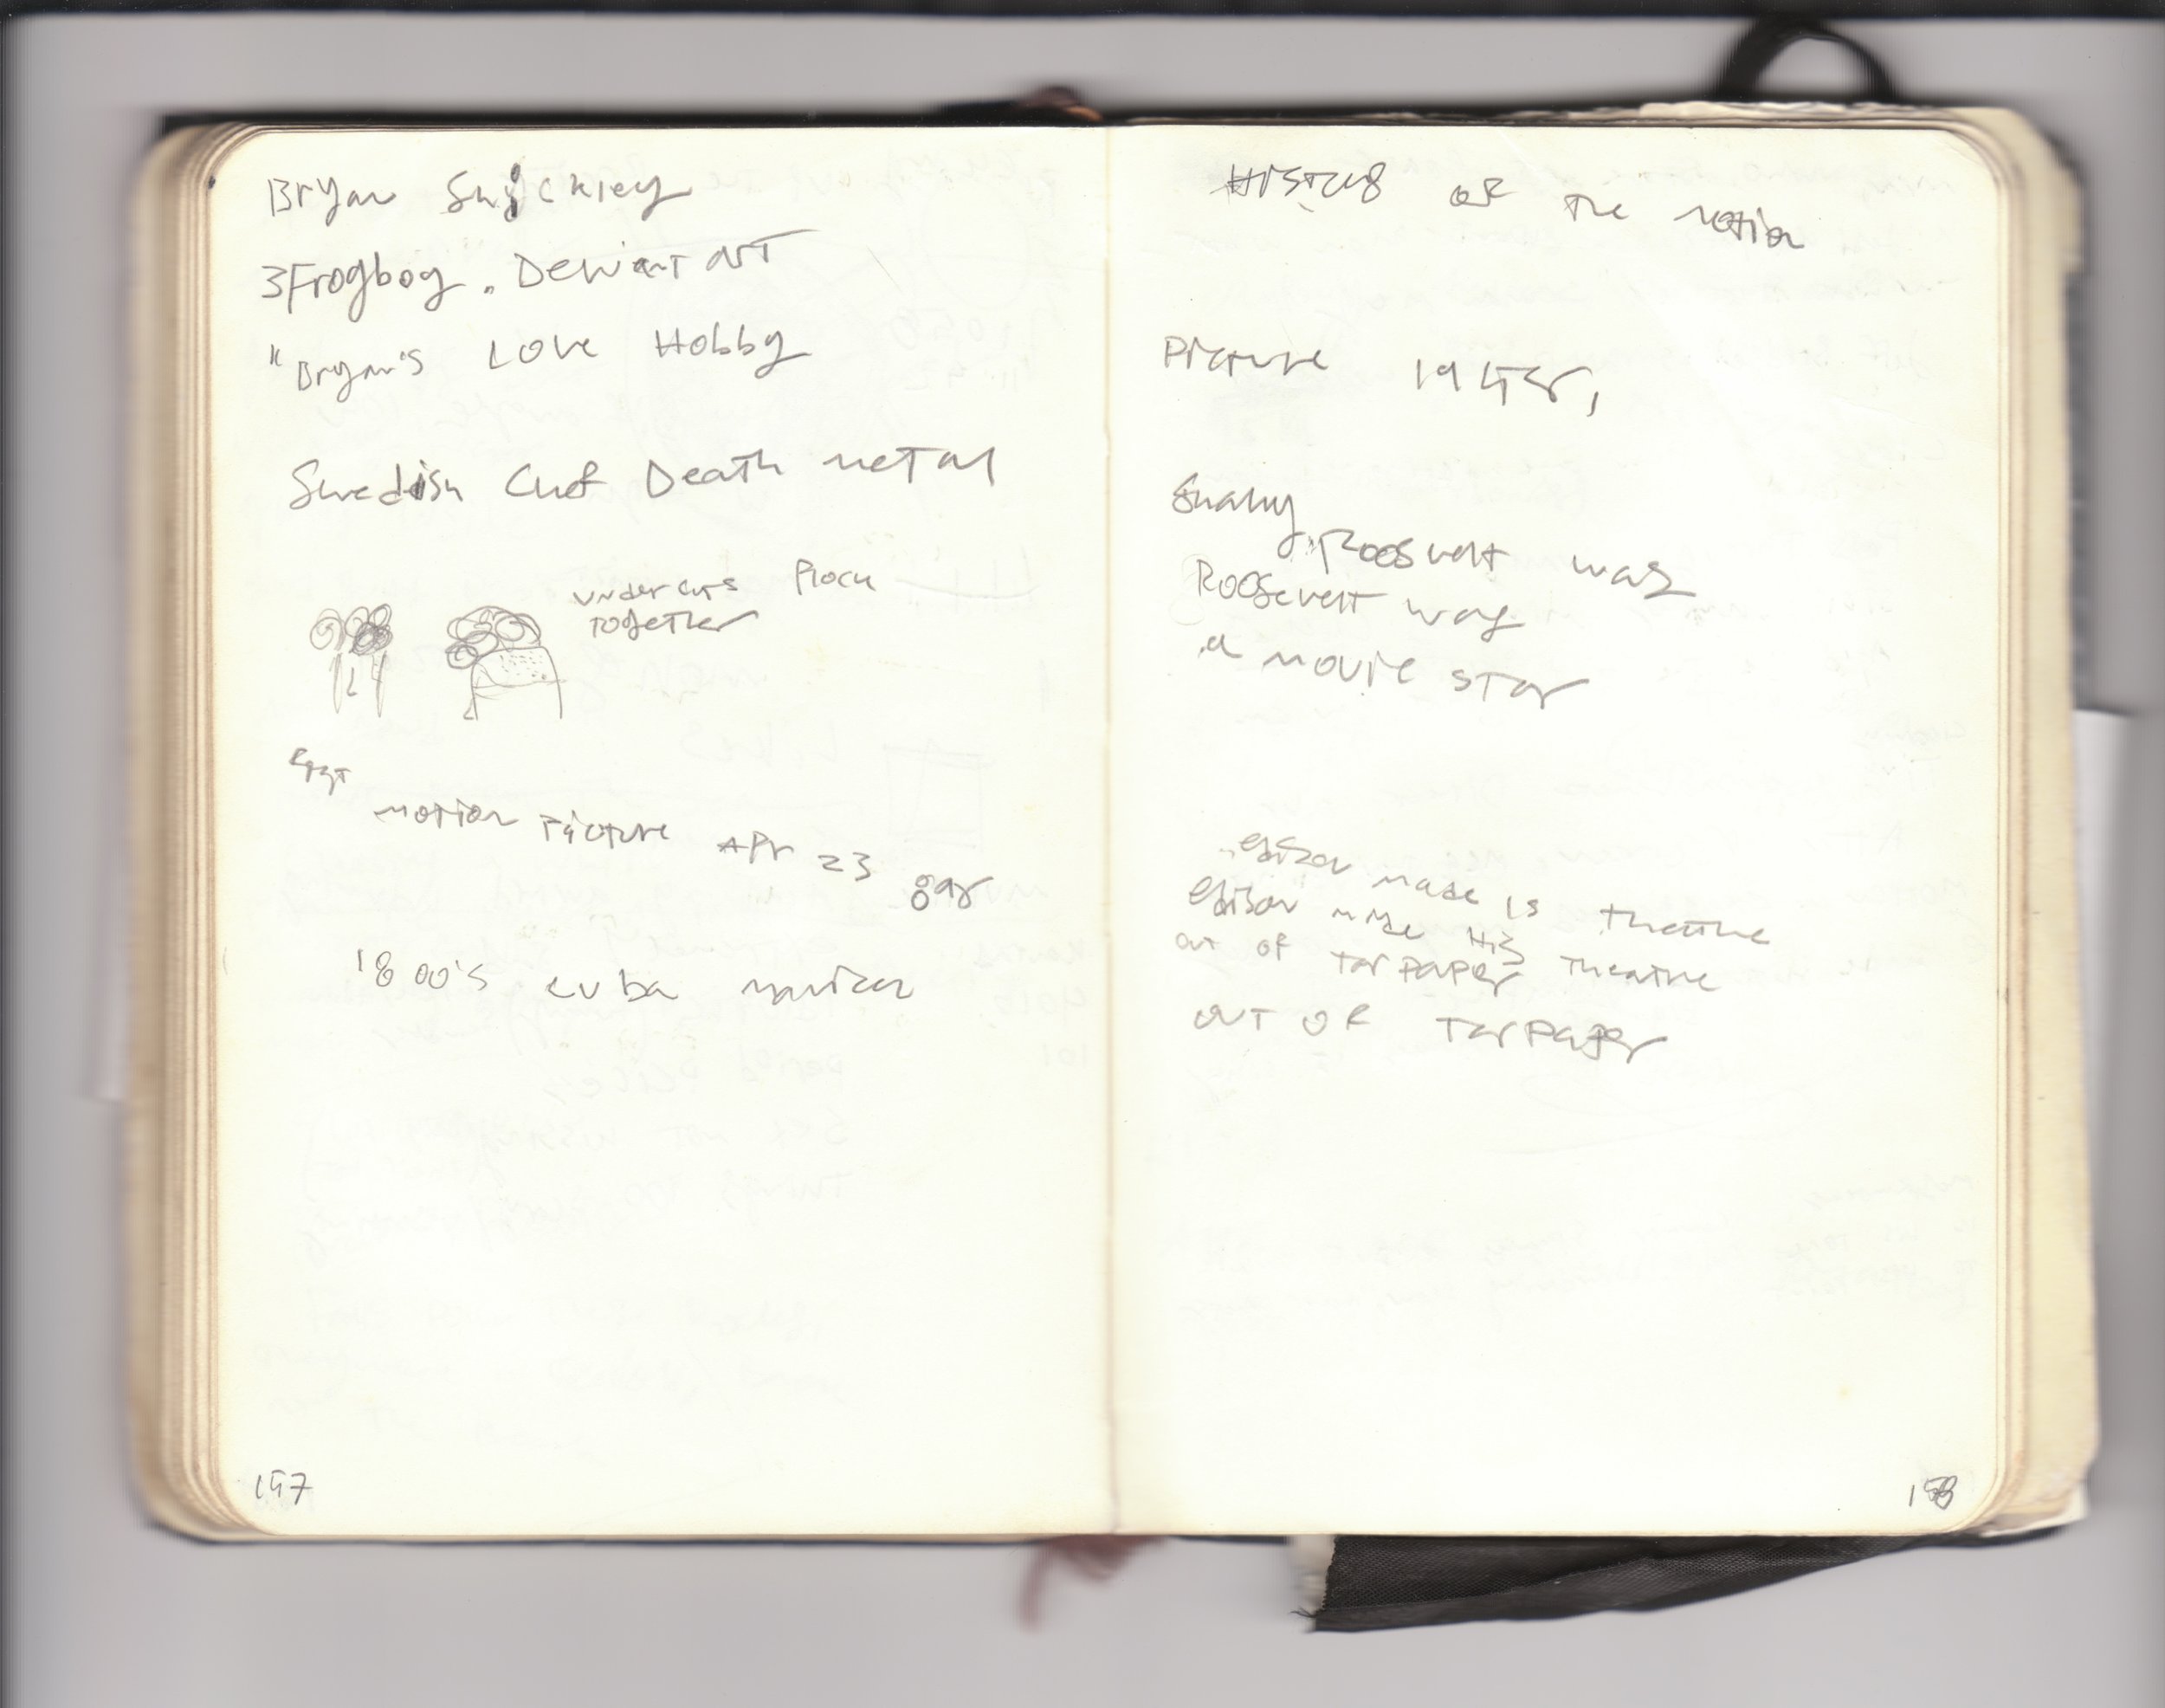 Bryan
3Frogbog. Deviant art
"Bryan's Love Hobby
Swedish Chef Death metal
under cuts Flock
together
motion Picture Apr 23
1800's cuba
History of the motion
Picture
Roosevelt was
Roosevelt was
a movie star
edison made is theatre
edison made His theatre
out of tar paper
out of tar paper
157
158